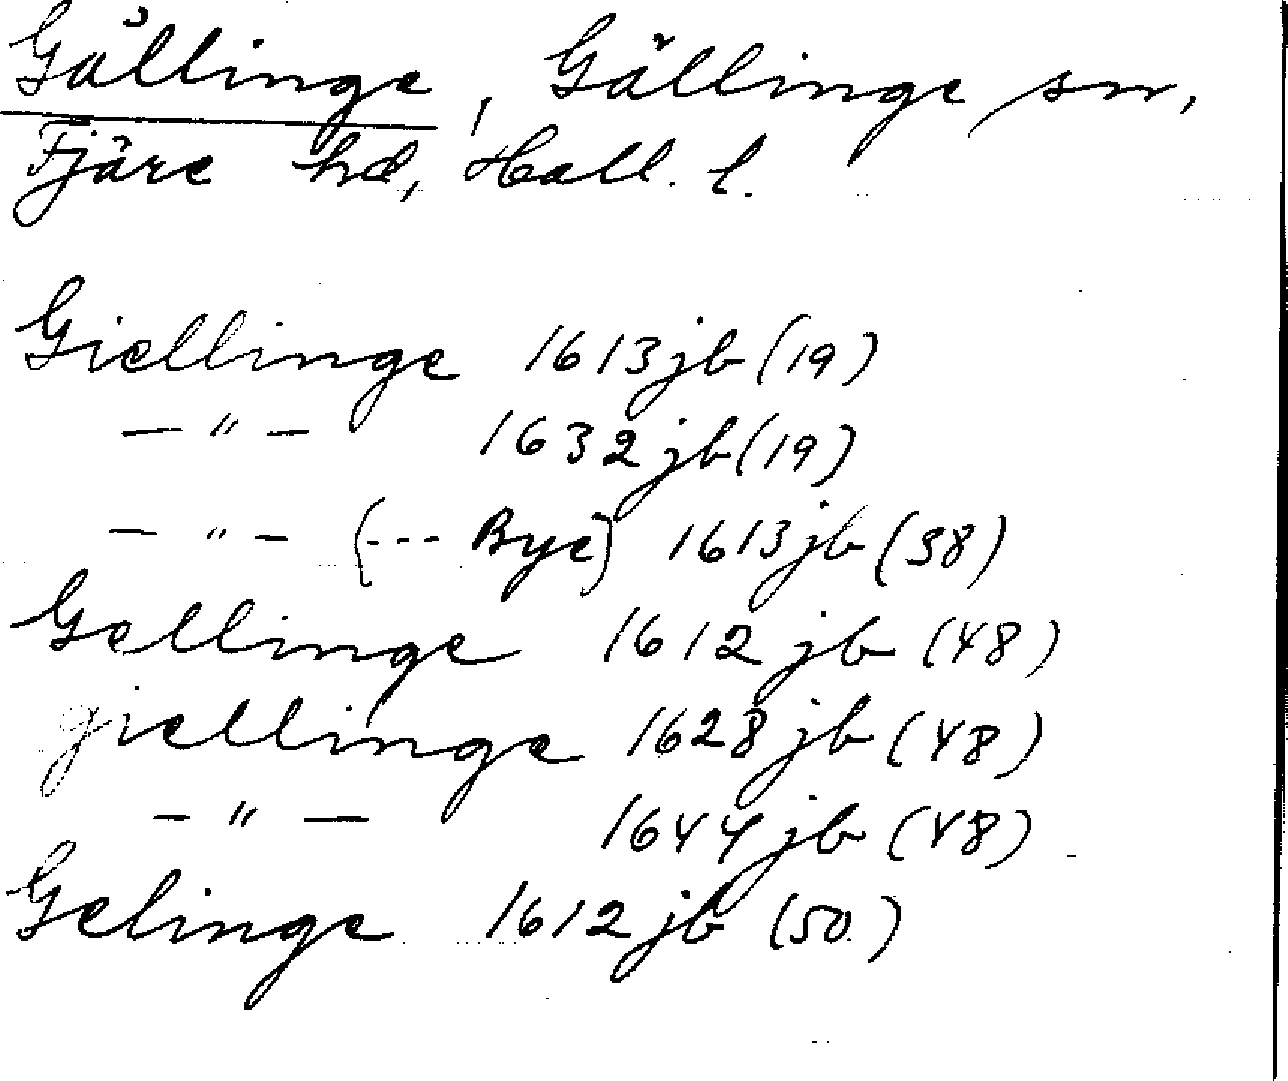 Gällinge, Gällinge sn,
Fjäre hd, Hall. l.
Giellinge 1613 jb (19)
— " — 1632 jb (19)
— " — (--- Bye) 1613 jb (38)
Gellinge 1612 jb (48)
giellinge 1628 jb (48)
— " — 1644 jb (48)
Gelinge 1612 jb (50)